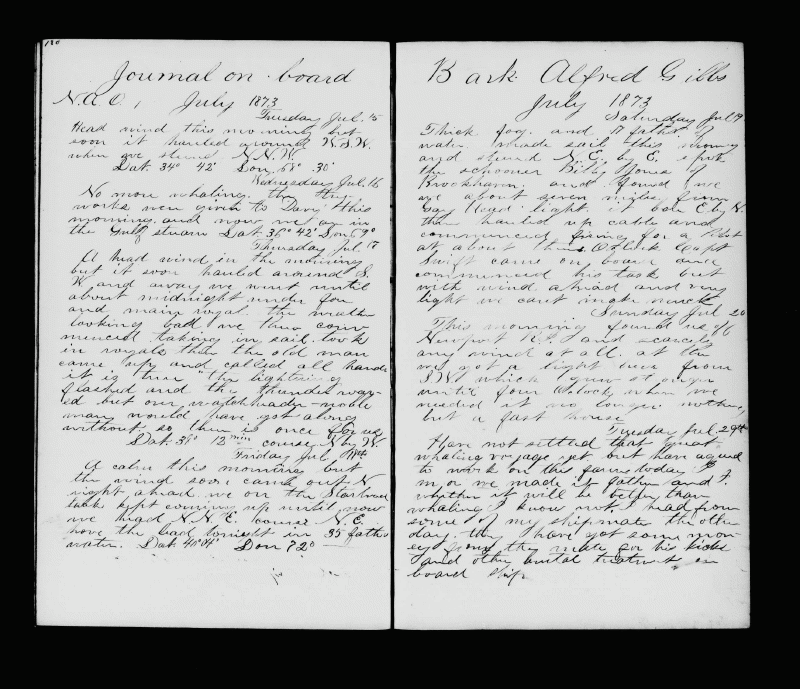 180
Journal on board
N.A.O. July 1873
Tuesday Jul. 15
Head wind this morning but
soon it hauled around W.S.W.
when we steered N.N.W.
Lat. 34° 42' Lon. 68° 30'
Wednesday Jul. 16
No more whaling. the try
works were given to Davy this
morning and now we are in
the Gulf stream Lat 36° 42' Lon 69°
Thursday Jul. 17
A head wind in the morning
but it soon hauled around S.
W. and away we went until
about midnight under fore
and main royal. the weather
looking bad we then com
menced taking in sail. took
in royals then the old man
came up and called all hands
it is true the lightening
flashed and the thunder roar-
ed but our watchheader noble
man would have got along
without so there is once for us
Lat. 38° 12 min course N by W.
Friday Jul. 18th
A calm this morning but
the wind soon came out N
right ahead we on the Starboard
tack kept coming up until now
we head N.N.E. course N.E.
hove the lead tonight in 35 fathoms
water. Lat 40° 04' Lon 72°
Bark Alfred Gibbs
July 1873
Saturday Jul 19
Thick fog. and 17 fathoms of
water. made sail this morning
and steered N.E. by E. spoke
the schooner Billy Jones of
Brookhaven. and found we
are about seven miles from
Gay Head light. it bore E by N.
then hauled up cable and
commenced firing for a Pilot
at about three O'clock Capt
Swift came on board and
commenced his task but
with wind ahead and very
light we cant make much
Sunday Jul 20
This morning found us off
Newport R.I. and scarcely
any wind at all. at
we got a light breeze from
S.W. which grew stronger
until four O'clock when we
needed it no longer nothing
but a fast house
Tuesday Jul. 29th
Have not settled that great
whaling voyage yet but have agreed
to work on the farm today 6
mo we made it father and I.
whether it will be better than
whaling I know not. I head from
some of my shipmates the other
day. they have got some mon-
ey from the mate for his kicks
and other brutal treatment on
board ship